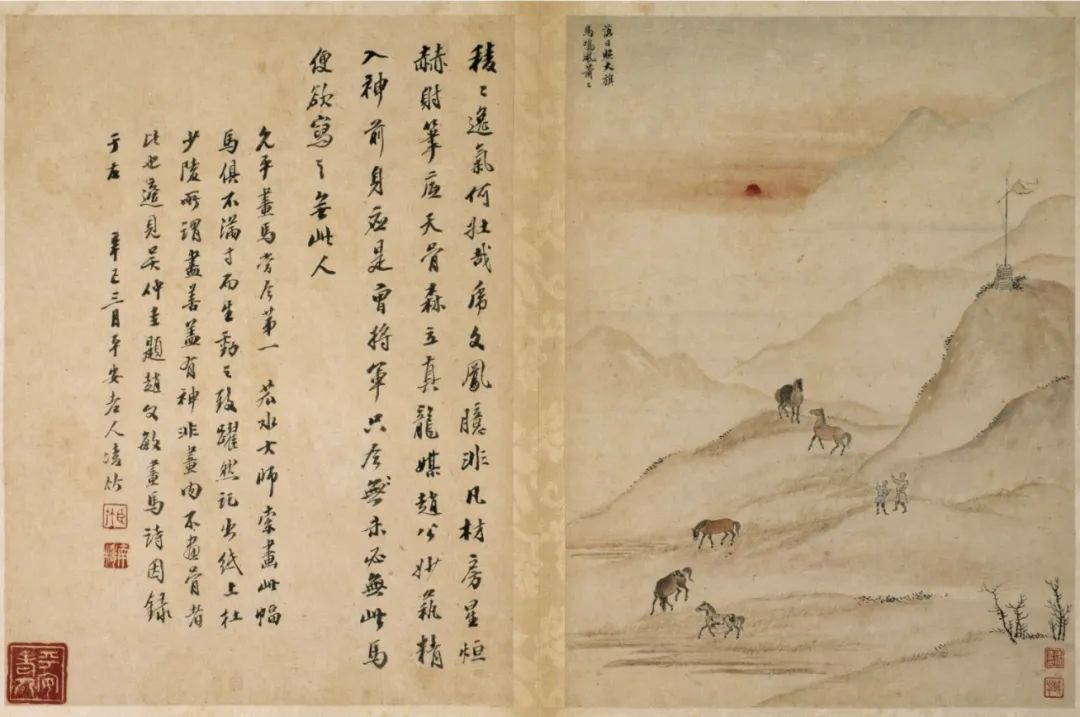 落日照大旗
馬鳴風蕭〻
稜〻逸氣何壯哉虎文鳳臆非凡材房星烜
赫財筆底天骨森立真龍媒趙公妙藝精
入神前身應是曹將軍只今無未必無此馬
便欲寫之無此人
允平畫馬當今第一若水大師索畫此幅
馬俱不滿寸而生動之致躍然記出紙上杜
少陵所謂盡善蓋有神非畫肉不畫骨者
比也適見吳仲圭題趙文敏畫馬詩因錄
于左
辛巳三月平安老人凌竹
平安